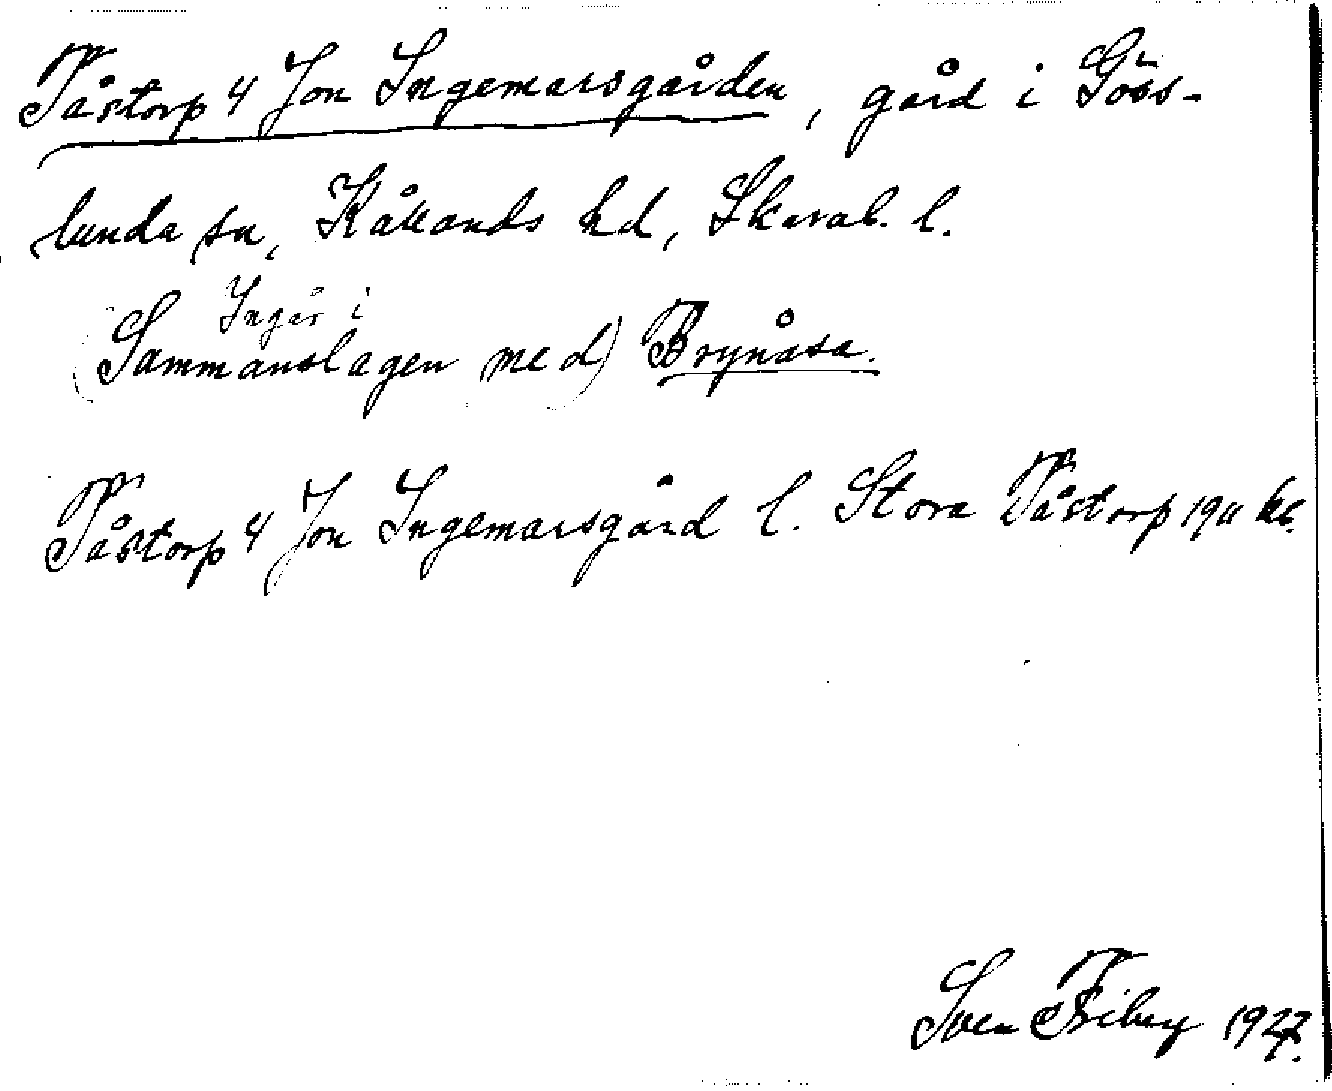 Tåstorp 4 Jon Ingemarsgården, gård i Göss-
lunda sn, Kållands hd, Skarab. l.
Ingår i
(Sammanslagen med) Brynåsa.
Tåstorp 4 Jon Ingemarsgård l. Stora Tåstorp 1911
Sven Fribey 1927.